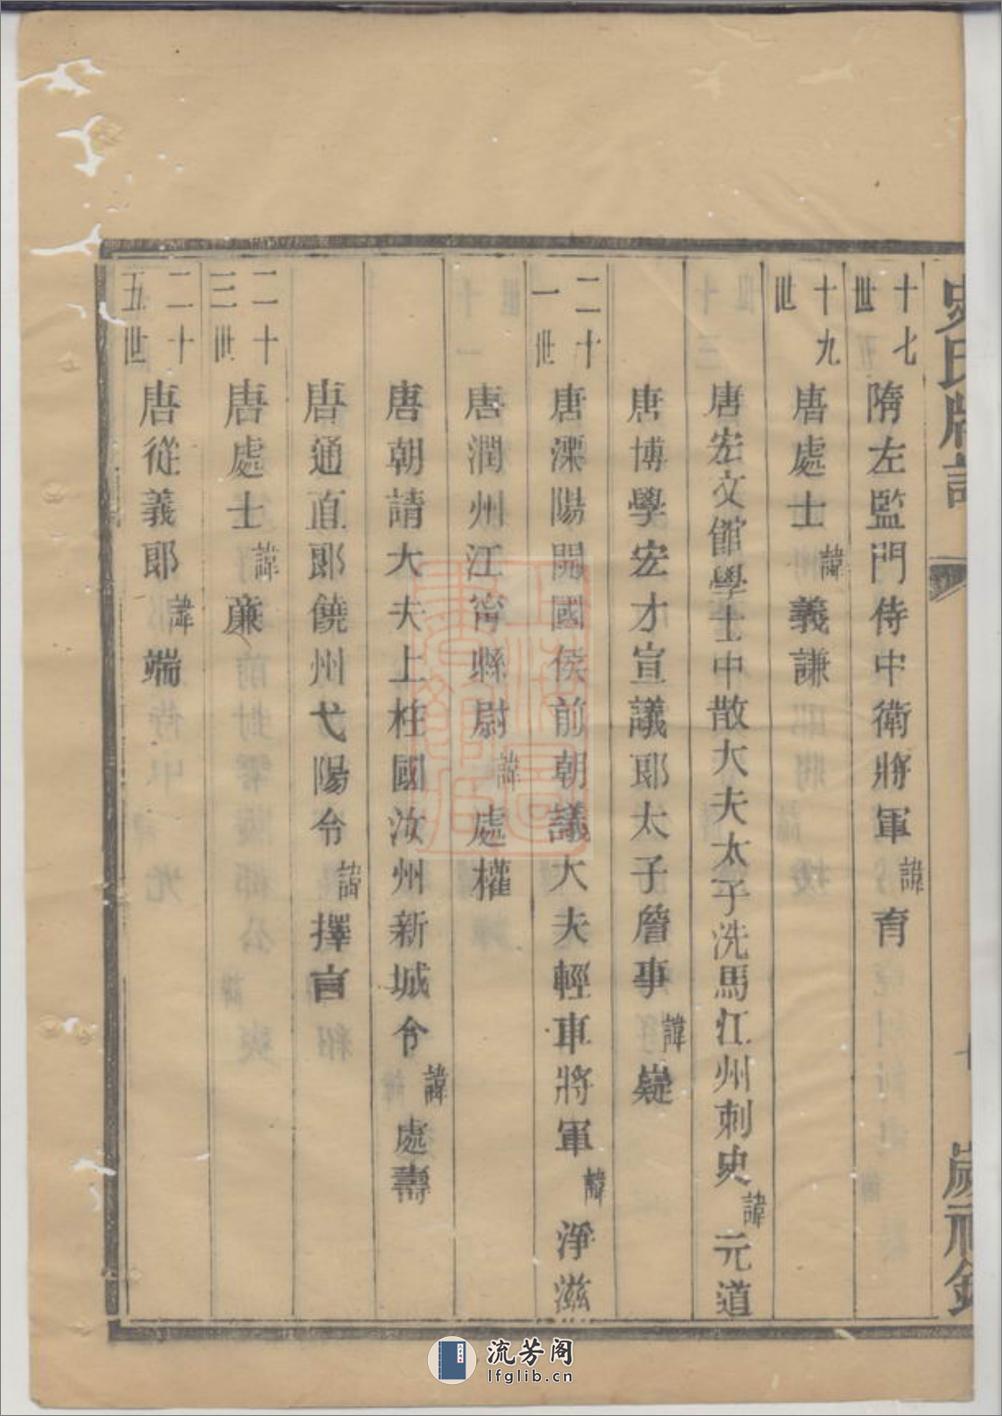 史氏牒譜
歲祀錄
十七世 隋左監門侍中衛將軍諱育
十九世 唐處士諱義謙
唐宏文館學士中散大夫太子洗馬江州刺史諱元道
唐博學宏才宣議郎太子詹事諱嶷
二十一世 唐溧陽開國侯前朝議大夫輕車將軍諱淨滋
唐潤州江甯縣尉諱處權
唐朝請大夫上柱國汝州新城令諱處壽
唐通直郎饒州弋陽令諱擇言
二十三世 唐處士諱蔗
二十五世 唐從義郎諱端
流芳阁
lfglib.cn